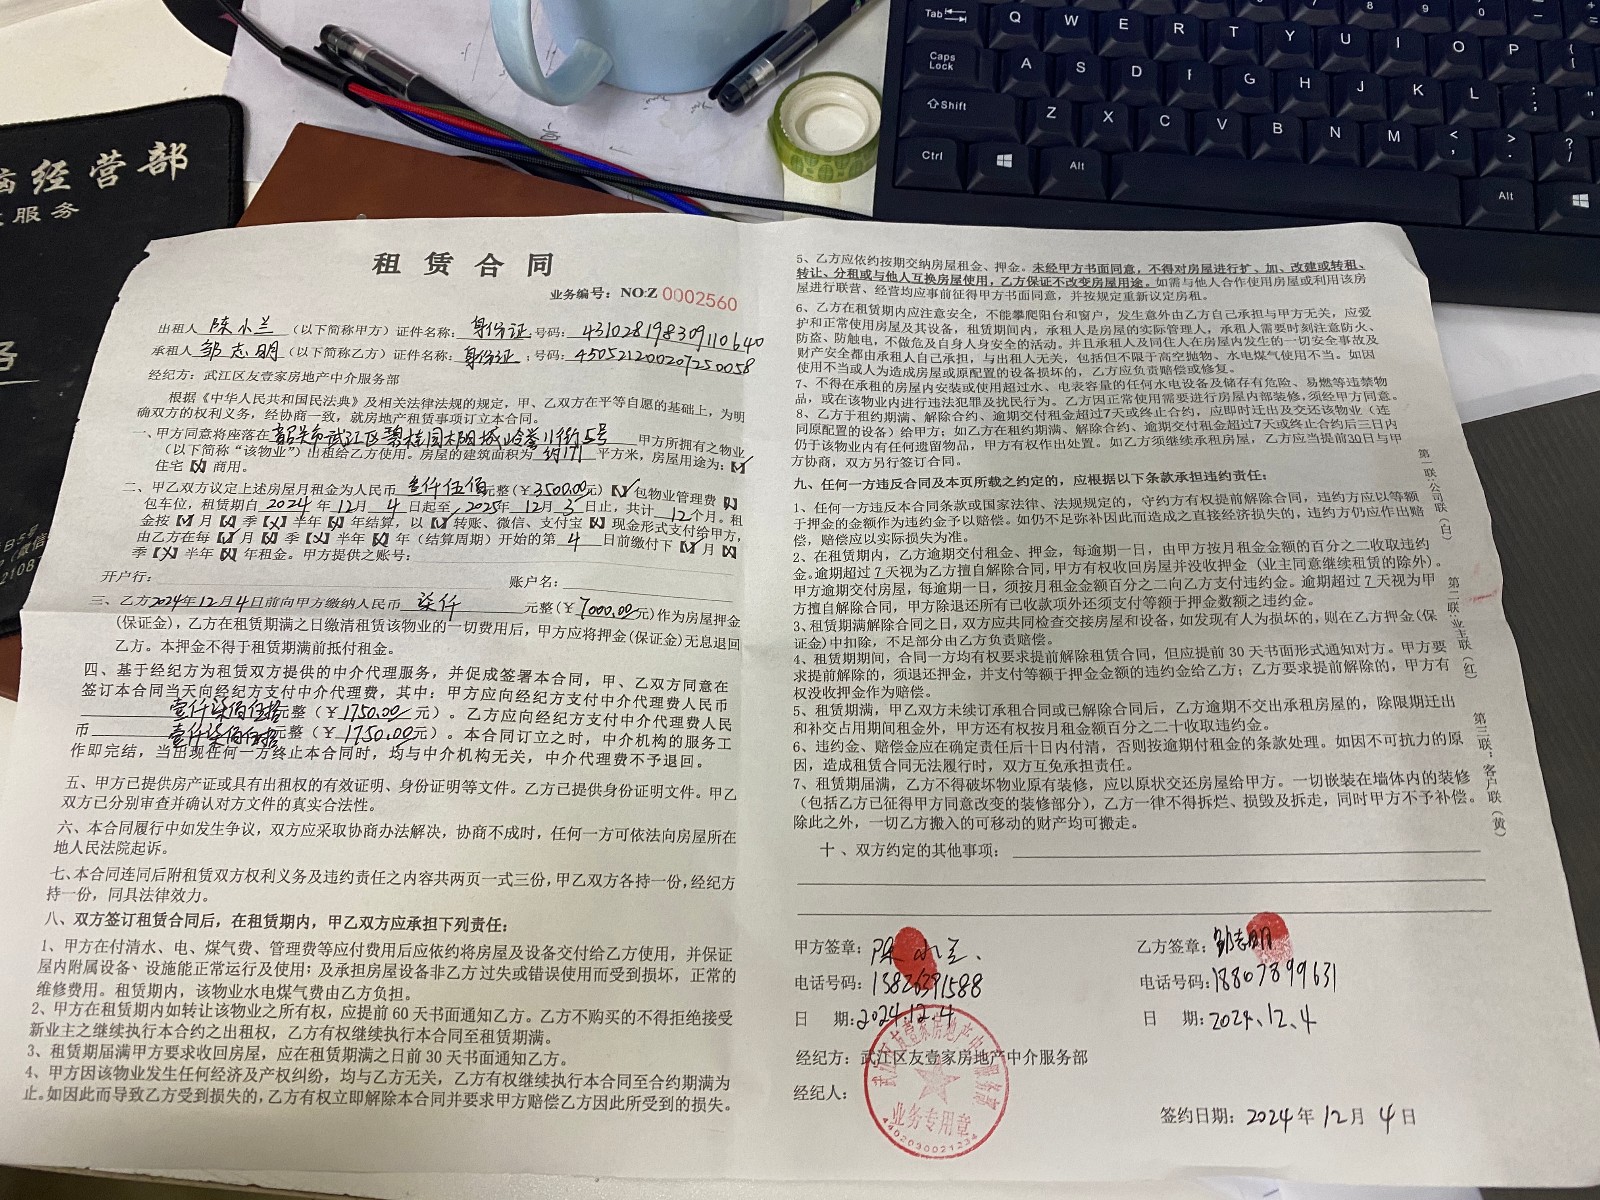 经营部
服务
Tab
Q W E R T Y U I O P
Caps Lock
A S D F G H J K L
Shift
Z X C V B N M
Ctrl
Alt
Alt
租赁合同
业务编号：NO:Z 0002560
出租人 陈小兰 （以下简称甲方）证件名称：身份证 号码：431028198309110640
承租人 邹志明 （以下简称乙方）证件名称：身份证 号码：450521200207250058
经纪方：武江区友壹家房地产中介服务部
根据《中华人民共和国民法典》及相关法律法规的规定，甲、乙双方在平等自愿的基础上，为明
确双方的权利义务，经协商一致，就房地产租赁事项订立本合同。
一、甲方同意将座落在 韶关市武江区碧桂园太阳城岭荟11街5号 甲方所拥有之物业
（以下简称“该物业”）出租给乙方使用。房屋的建筑面积为 约171 平方米，房屋用途为：【✓】
住宅【×】商用。
二、甲乙双方议定上述房屋月租金为人民币 叁仟伍佰 元整（￥3500.00元）【✓】包物业管理费【】
包车位，租赁期自 2024 年 12 月 4 日起至 2025 年 12 月 3 日止，共计 12 个月。租
金按【】月【】季【×】半年【】年结算，以【✓】转账、微信、支付宝【】现金形式支付给甲方，
由乙方在每【】月【】季【×】半年【】年（结算周期）开始的第 4 日前缴付下【】月【】
季【×】半年【】年租金。甲方提供之账号：
开户行： 账户名：
三、乙方2024年12月4日前向甲方缴纳人民币 柒仟 元整（￥7000.00元）作为房屋押金
（保证金），乙方在租赁期满之日缴清租赁该物业的一切费用后，甲方应将押金（保证金）无息退回
乙方。本押金不得于租赁期满前抵付租金。
四、基于经纪方为租赁双方提供的中介代理服务，并促成签署本合同，甲、乙双方同意在
签订本合同当天向经纪方支付中介代理费，其中：甲方应向经纪方支付中介代理费人民币
壹仟柒佰伍拾元整（￥1750.00元）。乙方应向经纪方支付中介代理费人民
币 壹仟柒佰伍拾元整（￥1750.00元）。本合同订立之时，中介机构的服务工
作即完结，当出现任何一方终止本合同时，均与中介机构无关，中介代理费不予退回。
五、甲方已提供房产证或具有出租权的有效证明、身份证明等文件。乙方已提供身份证明文件。甲乙
双方已分别审查并确认对方文件的真实合法性。
六、本合同履行中如发生争议，双方应采取协商办法解决，协商不成时，任何一方可依法向房屋所在
地人民法院起诉。
七、本合同连同后附租赁双方权利义务及违约责任之内容共两页一式三份，甲乙双方各持一份，经纪方
持一份，同具法律效力。
八、双方签订租赁合同后，在租赁期内，甲乙双方应承担下列责任：
1、甲方在付清水、电、煤气费、管理费等应付费用后应依约将房屋及设备交付给乙方使用，并保证
屋内附属设备、设施能正常运行及使用；及承担房屋设备非乙方过失或错误使用而受到损坏，正常的
维修费用。租赁期内，该物业水电煤气费由乙方负担。
2、甲方在租赁期内如转让该物业之所有权，应提前60天书面通知乙方。乙方不购买的不得拒绝接受
新业主之继续执行本合约之出租权，乙方有权继续执行本合同至租赁期满。
3、租赁期届满甲方要求收回房屋，应在租赁期满之日前30天书面通知乙方。
4、甲方因该物业发生任何经济及产权纠纷，均与乙方无关，乙方有权继续执行本合同至合约期满为
止。如因此而导致乙方受到损失的，乙方有权立即解除本合同并要求甲方赔偿乙方因此所受到的损失。
5、乙方应依约按期交纳房屋租金、押金。未经甲方书面同意，不得对房屋进行扩、加、改建或转租、
转让、分租或与他人互换房屋使用，乙方保证不改变房屋用途。如需与他人合作使用房屋或利用该房
屋进行联营、经营均应事前征得甲方书面同意，并按规定重新议定房租。
6、乙方在租赁期内应注意安全，不能攀爬阳台和窗户，发生意外由乙方自己承担与甲方无关，应爱
护和正常使用房屋及其设备，租赁期间内，承租人是房屋的实际管理人，承租人需要时刻注意防火、
防盗、防触电，不做危及自身人身安全的活动。并且承租人及同住人在房屋内发生的一切安全事故及
财产安全都由承租人自己承担，与出租人无关，包括但不限于高空抛物、水电煤气使用不当。如因
使用不当或人为造成房屋或原配置的设备损坏的，乙方应负责赔偿或修复。
7、不得在承租的房屋内安装或使用超过水、电表容量的任何水电设备及储存有危险、易燃等违禁物
品，或在该物业内进行违法犯罪及扰民行为。乙方因正常使用需要进行房屋内部装修，须经甲方同意。
8、乙方于租约期满、解除合约、逾期交付租金超过7天或终止合约，应即时迁出及交还该物业（连
同原配置的设备）给甲方；如乙方在租约期满、解除合约、逾期交付租金超过7天或终止合约后三日内
仍于该物业内有任何遗留物品，甲方有权作出处置。如乙方须继续承租房屋，乙方应当提前30日与甲
方协商，双方另行签订合同。
九、任何一方违反合同及本页所载之约定的，应根据以下条款承担违约责任：
1、任何一方违反本合同条款或国家法律、法规规定的，守约方有权提前解除合同，违约方应以等额
于押金的金额作为违约金予以赔偿。如仍不足弥补因此而造成之直接经济损失的，违约方仍应作出赔
偿，赔偿应以实际损失为准。
2、在租赁期内，乙方逾期交付租金、押金，每逾期一日，由甲方按月租金金额的百分之二收取违约
金。逾期超过7天视为乙方擅自解除合同，甲方有权收回房屋并没收押金（业主同意继续租赁的除外）。
甲方逾期交付房屋，每逾期一日，须按月租金金额百分之二向乙方支付违约金。逾期超过7天视为甲
方擅自解除合同，甲方除退还所有已收款项外还须支付等额于押金数额之违约金。
3、租赁期满解除合同之日，双方应共同检查交接房屋和设备，如发现有人为损坏的，则在乙方押金（保
证金）中扣除，不足部分由乙方负责赔偿。
4、租赁期期间，合同一方均有权要求提前解除租赁合同，但应提前30天书面形式通知对方。甲方要
求提前解除的，须退还押金，并支付等额于押金金额的违约金给乙方；乙方要求提前解除的，甲方有
权没收押金作为赔偿。
5、租赁期满，甲乙双方未续订承租合同或已解除合同后，乙方逾期不交出承租房屋的，除限期迁出
和补交占用期间租金外，甲方还有权按月租金额百分之二十收取违约金。
6、违约金、赔偿金应在确定责任后十日内付清，否则按逾期付租金的条款处理。如因不可抗力的原
因，造成租赁合同无法履行时，双方互免承担责任。
7、租赁期届满，乙方不得破坏物业原有装修，应以原状交还房屋给甲方。一切嵌装在墙体内的装修
（包括乙方已征得甲方同意改变的装修部分），乙方一律不得拆烂、损毁及拆走，同时甲方不予补偿。
除此之外，一切乙方搬入的可移动的财产均可搬走。
十、双方约定的其他事项：
甲方签章：陈小兰
电话号码：13826391588
日 期：2024.12.4
乙方签章：邹志明
电话号码：18807899631
日 期：2024.12.4
经纪方：武江区友壹家房地产中介服务部
经纪人：
武江区友壹家房地产中介服务部
业务专用章
4402030021234
签约日期：2024年12月4日
第一联：公司联（白）
第二联：业主联（红）
第三联：客户联（黄）